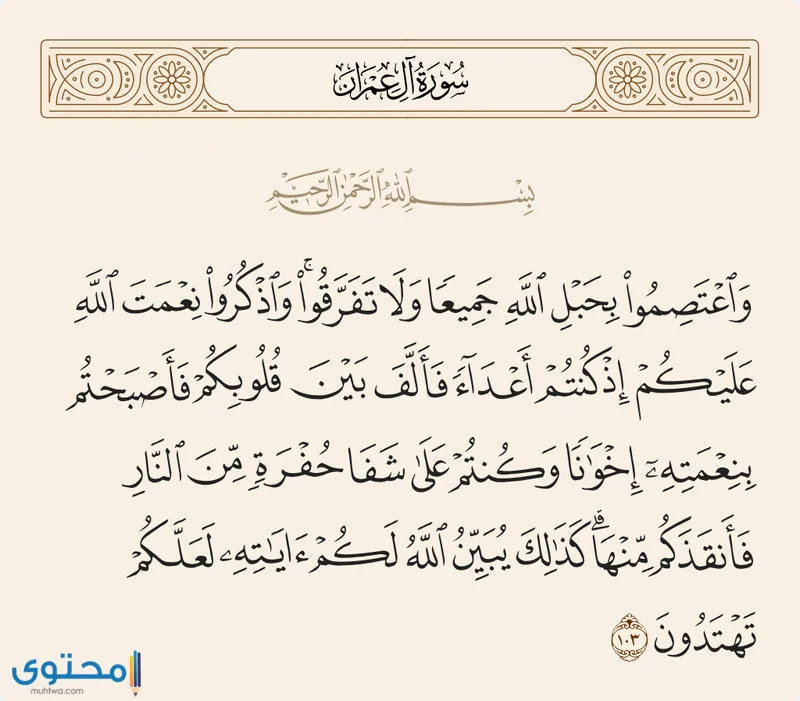 سُورَةُ آلِ عِمْرَانَ
بِسْمِ ٱللَّهِ ٱلرَّحْمَٰنِ ٱلرَّحِيمِ
وَٱعْتَصِمُوا۟ بِحَبْلِ ٱللَّهِ جَمِيعًا وَلَا تَفَرَّقُوا۟ ۚ وَٱذْكُرُوا۟ نِعْمَتَ ٱللَّهِ
عَلَيْكُمْ إِذْ كُنتُمْ أَعْدَآءً فَأَلَّفَ بَيْنَ قُلُوبِكُمْ فَأَصْبَحْتُم
بِنِعْمَتِهِۦٓ إِخْوَٰنًا وَكُنتُمْ عَلَىٰ شَفَا حُفْرَةٍ مِّنَ ٱلنَّارِ
فَأَنقَذَكُم مِّنْهَا ۗ كَذَٰلِكَ يُبَيِّنُ ٱللَّهُ لَكُمْ ءَايَٰتِهِۦ لَعَلَّكُمْ
تَهْتَدُونَ ١٠٣
محتوى
muhtwa.com